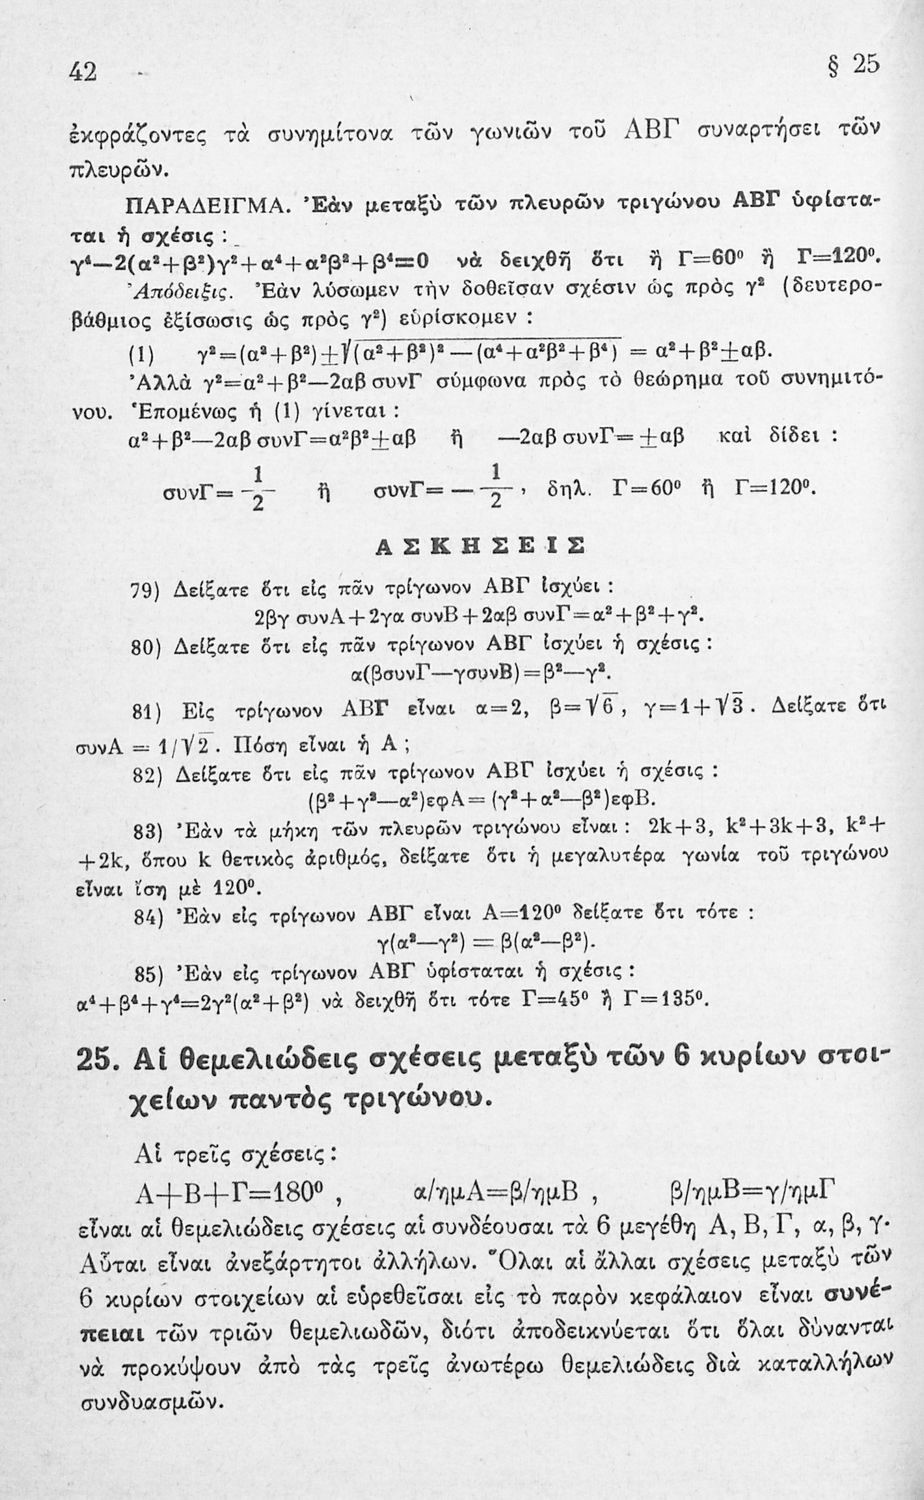 42 § 25
ἐκφράζοντες τὰ συνημίτονα τῶν γωνιῶν τοῦ ΑΒΓ συναρτήσει τῶν
πλευρῶν.
ΠΑΡΑΔΕΙΓΜΑ. Ἐὰν μεταξὺ τῶν πλευρῶν τριγώνου ΑΒΓ ὑφίστα-
ται ἡ σχέσις :
γ⁴—2(α²+β²)γ²+α⁴+α²β²+β⁴=0 νὰ δειχθῆ ὅτι ἢ Γ=60⁰ ἢ Γ=120⁰.
Ἀπόδειξις. Ἐὰν λύσωμεν τὴν δοθεῖσαν σχέσιν ὡς πρὸς γ² (δευτερο-
βάθμιος ἐξίσωσις ὡς πρὸς γ²) εὑρίσκομεν :
(1) γ²=(α²+β²)±√(α²+β²)²—(α⁴+α²β²+β⁴) = α²+β²±αβ.
Ἀλλὰ γ²=α²+β²—2αβ συνΓ σύμφωνα πρὸς τὸ θεώρημα τοῦ συνημιτό-
νου. Ἑπομένως ἡ (1) γίνεται :
α²+β²—2αβ συνΓ=α²β²±αβ ἢ —2αβ συνΓ= ±αβ καὶ δίδει :
συνΓ= 1/2 ἢ συνΓ= — 1/2 , δηλ. Γ=60⁰ ἢ Γ=120⁰.
ΑΣΚΗΣΕΙΣ
79) Δείξατε ὅτι εἰς πᾶν τρίγωνον ΑΒΓ ἰσχύει :
2βγ συνΑ+2γα συνΒ+2αβ συνΓ=α²+β²+γ².
80) Δείξατε ὅτι εἰς πᾶν τρίγωνον ΑΒΓ ἰσχύει ἡ σχέσις :
α(βσυνΓ—γσυνΒ)=β²—γ².
81) Εἰς τρίγωνον ΑΒΓ εἶναι α=2, β=√6 , γ=1+√3 . Δείξατε ὅτι
συνΑ = 1/√2 . Πόση εἶναι ἡ Α ;
82) Δείξατε ὅτι εἰς πᾶν τρίγωνον ΑΒΓ ἰσχύει ἡ σχέσις :
(β²+γ²—α²)εφΑ= (γ²+α²—β²)εφΒ.
83) Ἐὰν τὰ μήκη τῶν πλευρῶν τριγώνου εἶναι : 2k+3, k²+3k+3, k²+
+2k, ὅπου k θετικὸς ἀριθμός, δείξατε ὅτι ἡ μεγαλυτέρα γωνία τοῦ τριγώνου
εἶναι ἴση μὲ 120⁰.
84) Ἐὰν εἰς τρίγωνον ΑΒΓ εἶναι Α=120⁰ δείξατε ὅτι τότε :
γ(α²—γ²) = β(α²—β²).
85) Ἐὰν εἰς τρίγωνον ΑΒΓ ὑφίσταται ἡ σχέσις :
α⁴+β⁴+γ⁴=2γ²(α²+β²) νὰ δειχθῆ ὅτι τότε Γ=45⁰ ἢ Γ=135⁰.
25. Αἱ θεμελιώδεις σχέσεις μεταξὺ τῶν 6 κυρίων στοι-
χείων παντὸς τριγώνου.
Αἱ τρεῖς σχέσεις :
Α+Β+Γ=180⁰ , α/ημΑ=β/ημΒ , β/ημΒ=γ/ημΓ
εἶναι αἱ θεμελιώδεις σχέσεις αἱ συνδέουσαι τὰ 6 μεγέθη Α, Β, Γ, α, β, γ.
Αὗται εἶναι ἀνεξάρτητοι ἀλλήλων. Ὅλαι αἱ ἄλλαι σχέσεις μεταξὺ τῶν
6 κυρίων στοιχείων αἱ εὑρεθεῖσαι εἰς τὸ παρὸν κεφάλαιον εἶναι συνέ-
πειαι τῶν τριῶν θεμελιωδῶν, διότι ἀποδεικνύεται ὅτι ὅλαι δύνανται
νὰ προκύψουν ἀπὸ τὰς τρεῖς ἀνωτέρω θεμελιώδεις διὰ καταλλήλων
συνδυασμῶν.